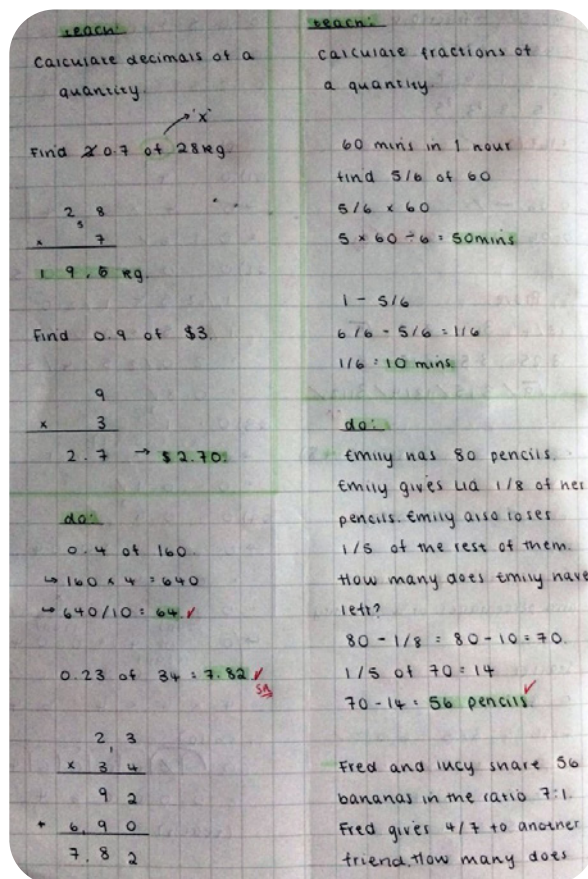 teach:
Calculate decimals of a
quantity.
'x'
Find 0.7 of 28kg
2 8
5
x 7
1 9 . 6 kg.
Find 0.9 of $3.
9
x 3
2 . 7 → $2.70.
do:
0.4 of 160
↳ 160 x 4 = 640
↳ 640/10 = 64 ✓
0.23 of 34 = 7.82 ✓
SA
2, 3
x 3 4
9 2
+ 6, 9 0
7 . 8 2
teach:
Calculate fractions of
a quantity.
60 mins in 1 hour
find 5/6 of 60
5/6 x 60
5 x 60 ÷ 6 = 50mins
1 - 5/6
6/6 - 5/6 = 1/6
1/6 = 10 mins
do:
Emily has 80 pencils.
Emily gives Lia 1/8 of her
pencils. Emily also loses
1/5 of the rest of them.
How many does Emily have
left?
80 - 1/8 = 80 - 10 = 70.
1/5 of 70 = 14
70 - 14 = 56 pencils ✓
Fred and lucy share 56
bananas in the ratio 7:1.
Fred gives 4/7 to another
friend. How many does